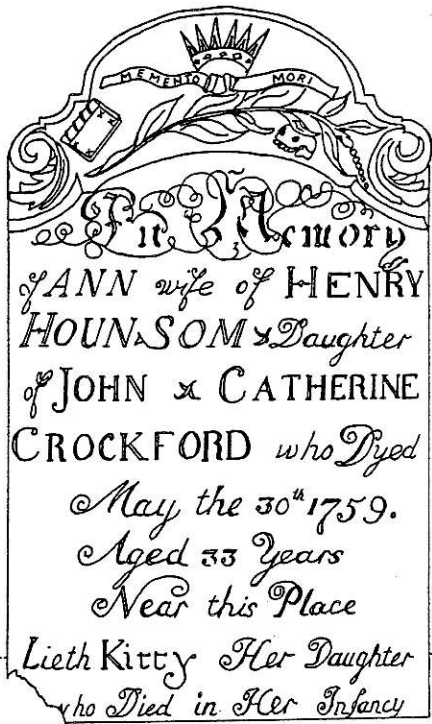 MEMENTO MORI
In Memory
of ANN wife of HENRY
HOUNSOM & Daughter
of JOHN & CATHERINE
CROCKFORD who Dyed
May the 30th 1759.
Aged 33 Years
Near this Place
Lieth Kitty Her Daughter
who Died in Her Infancy